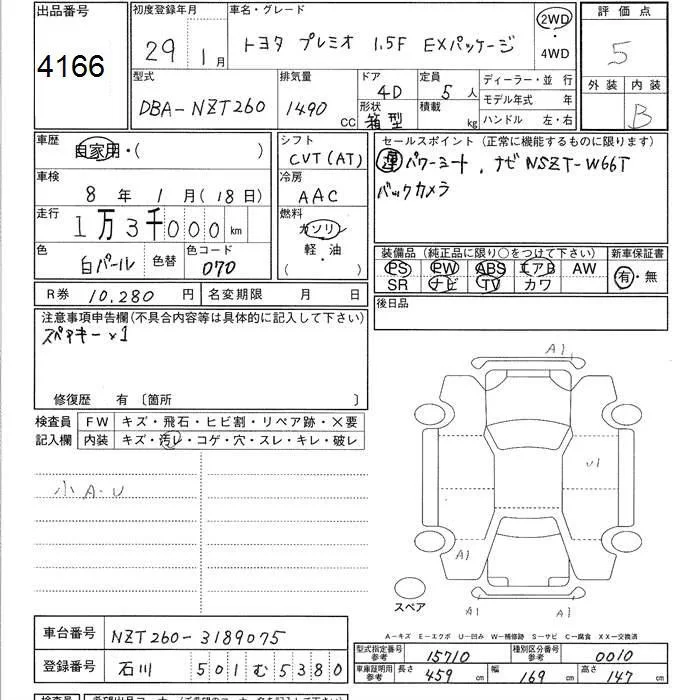 出品番号
4166
初度登録年月
29年 1月
車名・グレード
トヨタ プレミオ 1.5F EXパッケージ
2WD
・
4WD
評価点
5
外装 内装
B
型式
DBA-NZT260
排気量
1490 CC
ドア
4D
形状
箱型
定員
5 人
積載
kg
ディーラー・並 行
モデル年式 年
ハンドル 左・右
車歴
自家用・( )
車検
8 年 1 月 (18 日)
走行
1万3千000 km
色
白パール
色替
色コード
070
シフト
CVT(AT)
冷房
AAC
燃料
ガソリン
軽・油
( )
セールスポイント(正常に機能するものに限ります)
運パワーシート、ナビNSZT-W66T
バックカメラ
装備品(純正品に限り○をつけて下さい)
PS PW ABS エアB AW
SR ナビ TV カワ
新車保証書
有・無
後日品
R券 10,280 円 名変期限 月 日
注意事項申告欄(不具合内容等は具体的に記入して下さい)
スペアキー×1
修復歴 有〔箇所 〕
検査員
記入欄
FW キズ・飛石・ヒビ割・リペア跡・×要
内装 キズ・汚レ・コゲ・穴・スレ・キレ・破レ
小A・U
A1
U1
A1
A1 A1
スペア
A―キズ E―エクボ U―凹み W―補修跡 S―サビ C―腐食 XX―交換済
車台番号 NZT260-3189075
登録番号 石川 501む5380
型式指定番号
参考
15710
種別区分番号
参考
0010
車庫証明用
参考
長さ 459 cm 幅 169 cm 高さ 147 cm